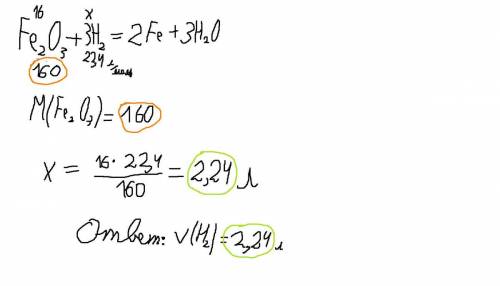 16 x
Fe2O3 + 3H2 = 2Fe + 3H2O
160 23,4 л/моль
M(Fe2O3) = 160
x = 16 · 23,4 / 160 = 2,24 л
Ответ: V(H2) = 2,24 л